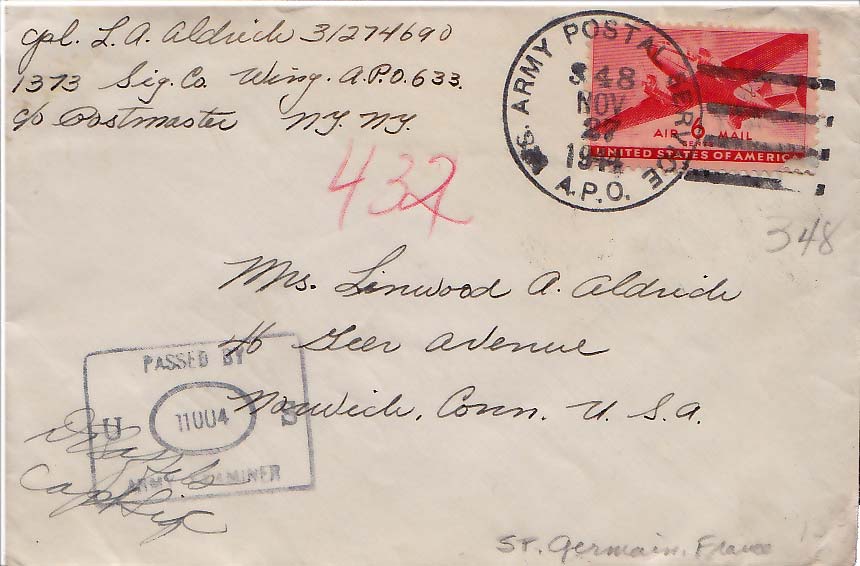 Cpl. L. A. Aldrich 31274690
1373 Sig. Co. Wing. A.P.O. 633.
c/o Postmaster N.Y. N.Y.
U.S. ARMY POSTAL SERVICE
348
NOV
27
1944
A.P.O.
AIR 6 MAIL
CENTS
UNITED STATES OF AMERICA
432
348
Mrs. Linwood A. Aldrich
46 Geer Avenue
Norwich, Conn. U. S. A.
PASSED BY
U 11004 S
ARMY EXAMINER
Capt Sig C
St. Germain, France